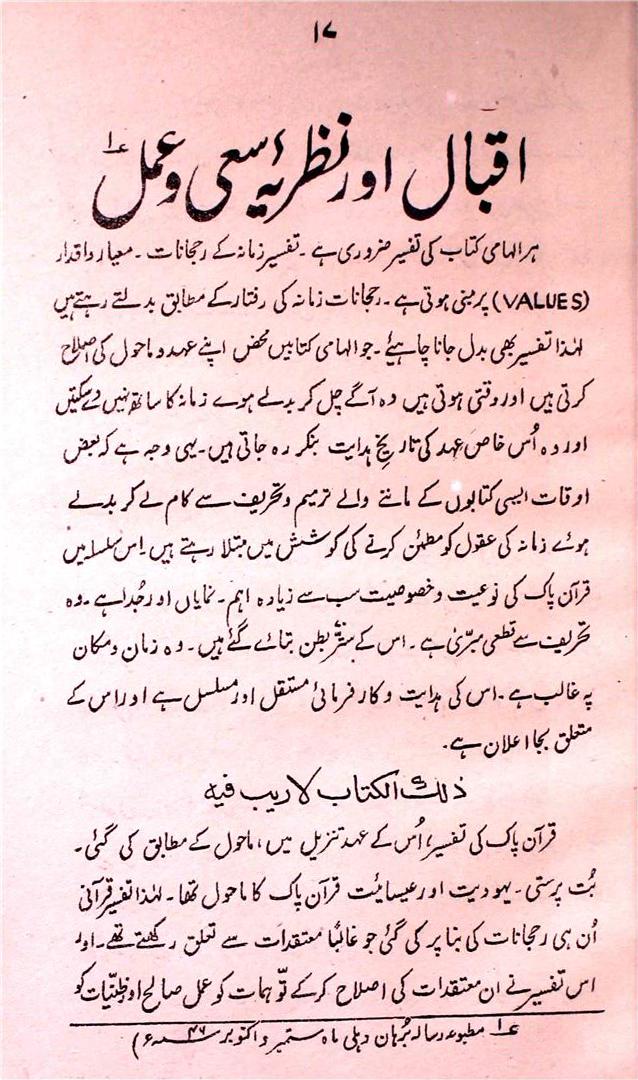 ۱۷
اقبال اور نظریۂ سعی و عمل ؏۱
ہر الہامی کتاب کی تفسیر ضروری ہے۔ تفسیر زمانہ کے رجحانات۔ معیار و اقدار
(VALUES) پر مبنی ہوتی ہے۔ رجحانات زمانہ کی رفتار کے مطابق بدلتے رہتے ہیں
لہٰذا تفسیر بھی بدل جانا چاہیئے۔ جو الہامی کتابیں محض اپنے عہد و ماحول کی اصلاح
کرتی ہیں اور وقتی ہوتی ہیں وہ آگے چل کر بدلے ہوے زمانہ کا ساتھ نہیں دے سکتیں
اور وہ اُس خاص عہد کی تاریخِ ہدایت بنکر رہ جاتی ہیں۔ یہی وجہ ہے کہ بعض
اوقات ایسی کتابوں کے ماننے والے ترمیم و تحریف سے کام لے کر بدلے
ہوئے زمانہ کی عقول کو مطمئن کرنے کی کوشش میں مبتلا رہتے ہیں۔ اِس سلسلہ میں
قرآن پاک کی نوعیت و خصوصیت سب سے زیادہ اہم۔ نمایاں اور جُدا ہے۔ وہ
تحریف سے قطعی مبرّیٰ ہے۔ اس کے ستّر بطن بتائے گئے ہیں۔ وہ زمان و مکان
پہ غالب ہے۔ اس کی ہدایت و کارفرمائی مستقل اور مسلسل ہے اور اس کے
متعلق بجا اعلان ہے۔
ذٰلک الکتاب لا ریب فیه
قرآن پاک کی تفسیر، اُس کے عہد تنزیل میں، ماحول کے مطابق کی گئی۔
بُت پرستی۔ یہودیت اور عیسائیت قرآن پاک کا ماحول تھا۔ لہٰذا تفسیر قرآنی
اُن ہی رجحانات کی بنا پر کی گئی جو غالبًا معتقدات سے تعلق رکھتے تھے۔ اور
اس تفسیر نے ان معتقدات کی اصلاح کرکے توّہمات کو عمل صالح اور ظنیّات کو
؏۱ مطبوعہ رسالہ بُرہان دہلی ماہ ستمبر و اکتوبر ۴۶ء)